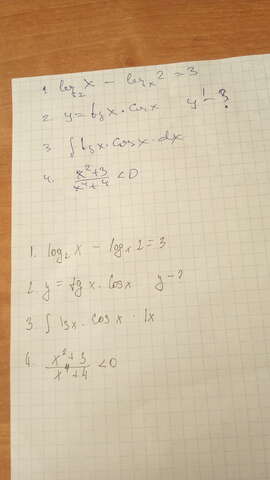 1. log₂ x - logₓ 2 = 3
2. y = tgx · cosx y' - ?
3. ∫ tgx · cosx · dx
4. x²+3 / x⁴+4 < 0
1. log₂ x - logₓ 2 = 3
2. y = tg x · cosx y - ?
3. ∫ tgx · cosx · dx
4. x²+3 / x⁴+4 < 0